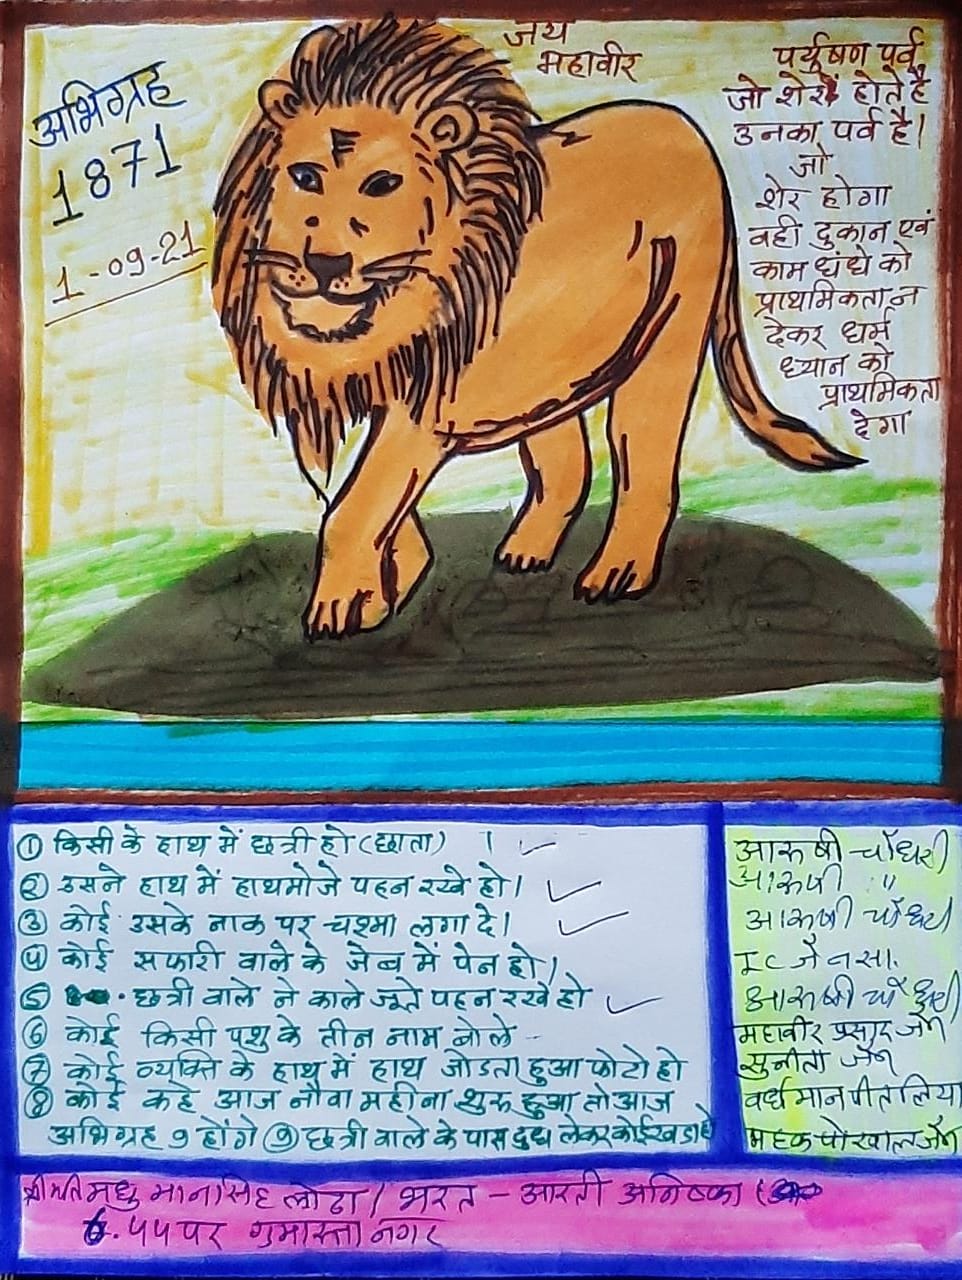 जय
महावीर
अभिग्रह
1871
1-09-21
पर्युषण पर्व
जो शेर होते है
उनका पर्व है।
जो
शेर होगा
वही दुकान एवं
काम धंधे को
प्राथमिकता न
देकर धर्म
ध्यान को
प्राथमिकता
देगा
① किसी के हाथ में छत्री हो (छाता) ।
② उसने हाथ में हाथमोजे पहन रखे हो।
③ कोई उसके नाक पर चश्मा लगा दे।
४ कोई सफारी वाले के जेब में पेन हो।
⑤ छत्री वाले ने काले जूते पहन रखे हो
⑥ कोई किसी पशु के तीन नाम बोले
⑦ कोई व्यक्ति के हाथ में हाथ जोडता हुआ फोटो हो
⑧ कोई कहे आज नौवा महीना शुरू हुआ तो आज
अभिग्रह 9 होंगे ⑨ छत्री वाले के पास दुध लेकर कोई खडा हो
आरुषी चौधरी
आरुषी "
आरुषी चौधरी
जैन सा.
आरुषी चौधरी
महावीर प्रसाद जैन
सुनीता जैन
वर्धमान पीतलिया
महक पोरवाल जैन
श्रीमति मधु मानसिंह लोढा / भरत - आरती अनिष्का
५५ पर गुमास्ता नगर